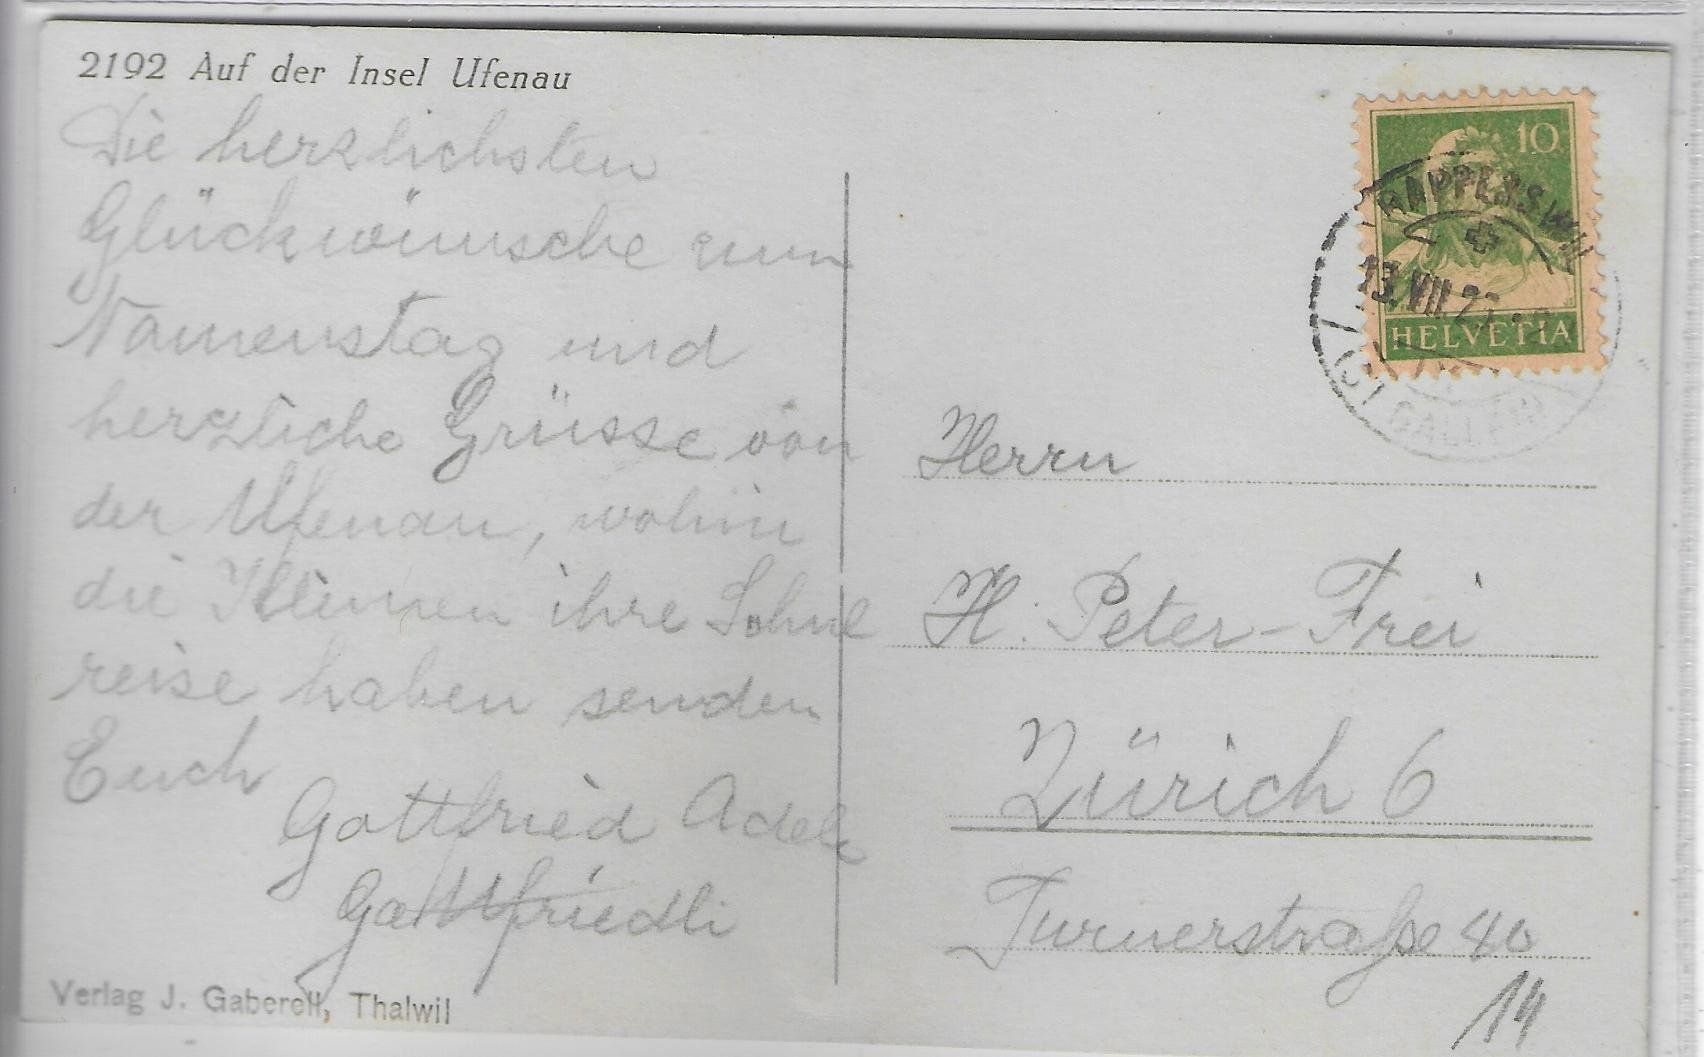 2192 Auf der Insel Ufenau
Die herzlichsten
Glückwünsche zum
Namenstag und
herzliche Grüsse von
der Ufenau, wohin
die Kleinen ihre Schul
reise haben senden
Euch
Gottfried Adele
Gottfriedli
Verlag J. Gaberell, Thalwil
10
RAPPERSWIL
13.VII.2
HELVETIA
(ST GALLEN)
Herrn
H. Peter-Frei
Zürich 6
Turnerstraße 40
14